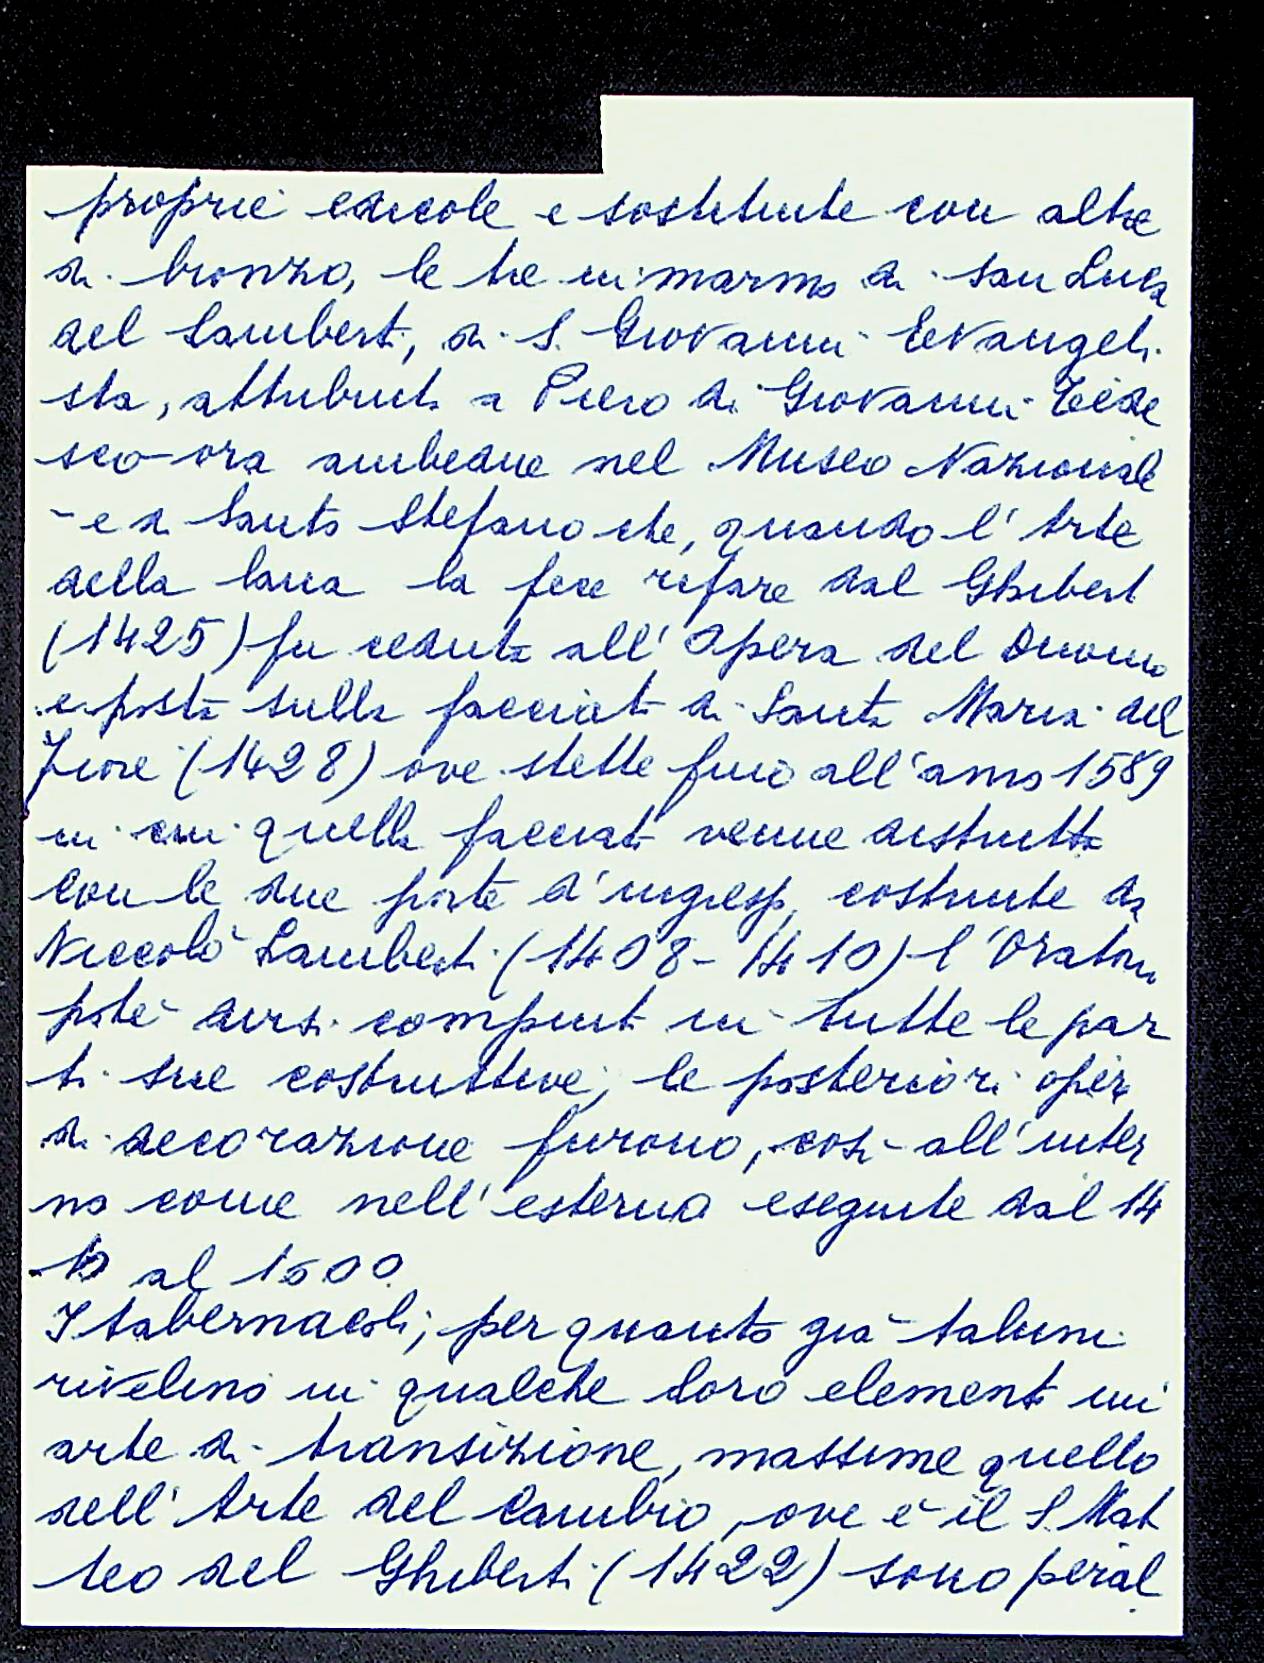 proprie edicole e sostituite con altre
di bronzo, le tre in marmo di San Luca
del Lamberti, di S. Giovanni Evangeli
sta, attribuita a Piero di Giovanni Tede
sco - ora ambedue nel Museo Nazionale
- e di Santo Stefano che, quando l'Arte
della lana la fece rifare dal Ghiberti
(1425) fu ceduta all'Opera del Duomo
e posta sulla facciata di Santa Maria del
Fiore (1428) ove stette fino all'anno 1589
in cui quella facciata venne distrutta
Con le due porte d'ingresso, costruite da
Niccolò Lamberti (1408-1410) l'Oratorio
poté dirsi compiuto in tutte le par
ti sue costruttive; le posteriori opere
di decorazione furono, così all'inter
no come nell'esterno eseguite dal 14
10 al 1600
I tabernacoli, per quanto già taluni
rivelino in qualche loro elemento un'
arte di transizione, massime quello
dell'Arte del Cambio, ove è il S. Mat
teo del Ghiberti (1422) sono peral